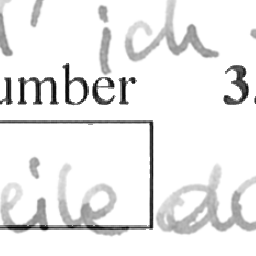 ich
umber 3.
eile do